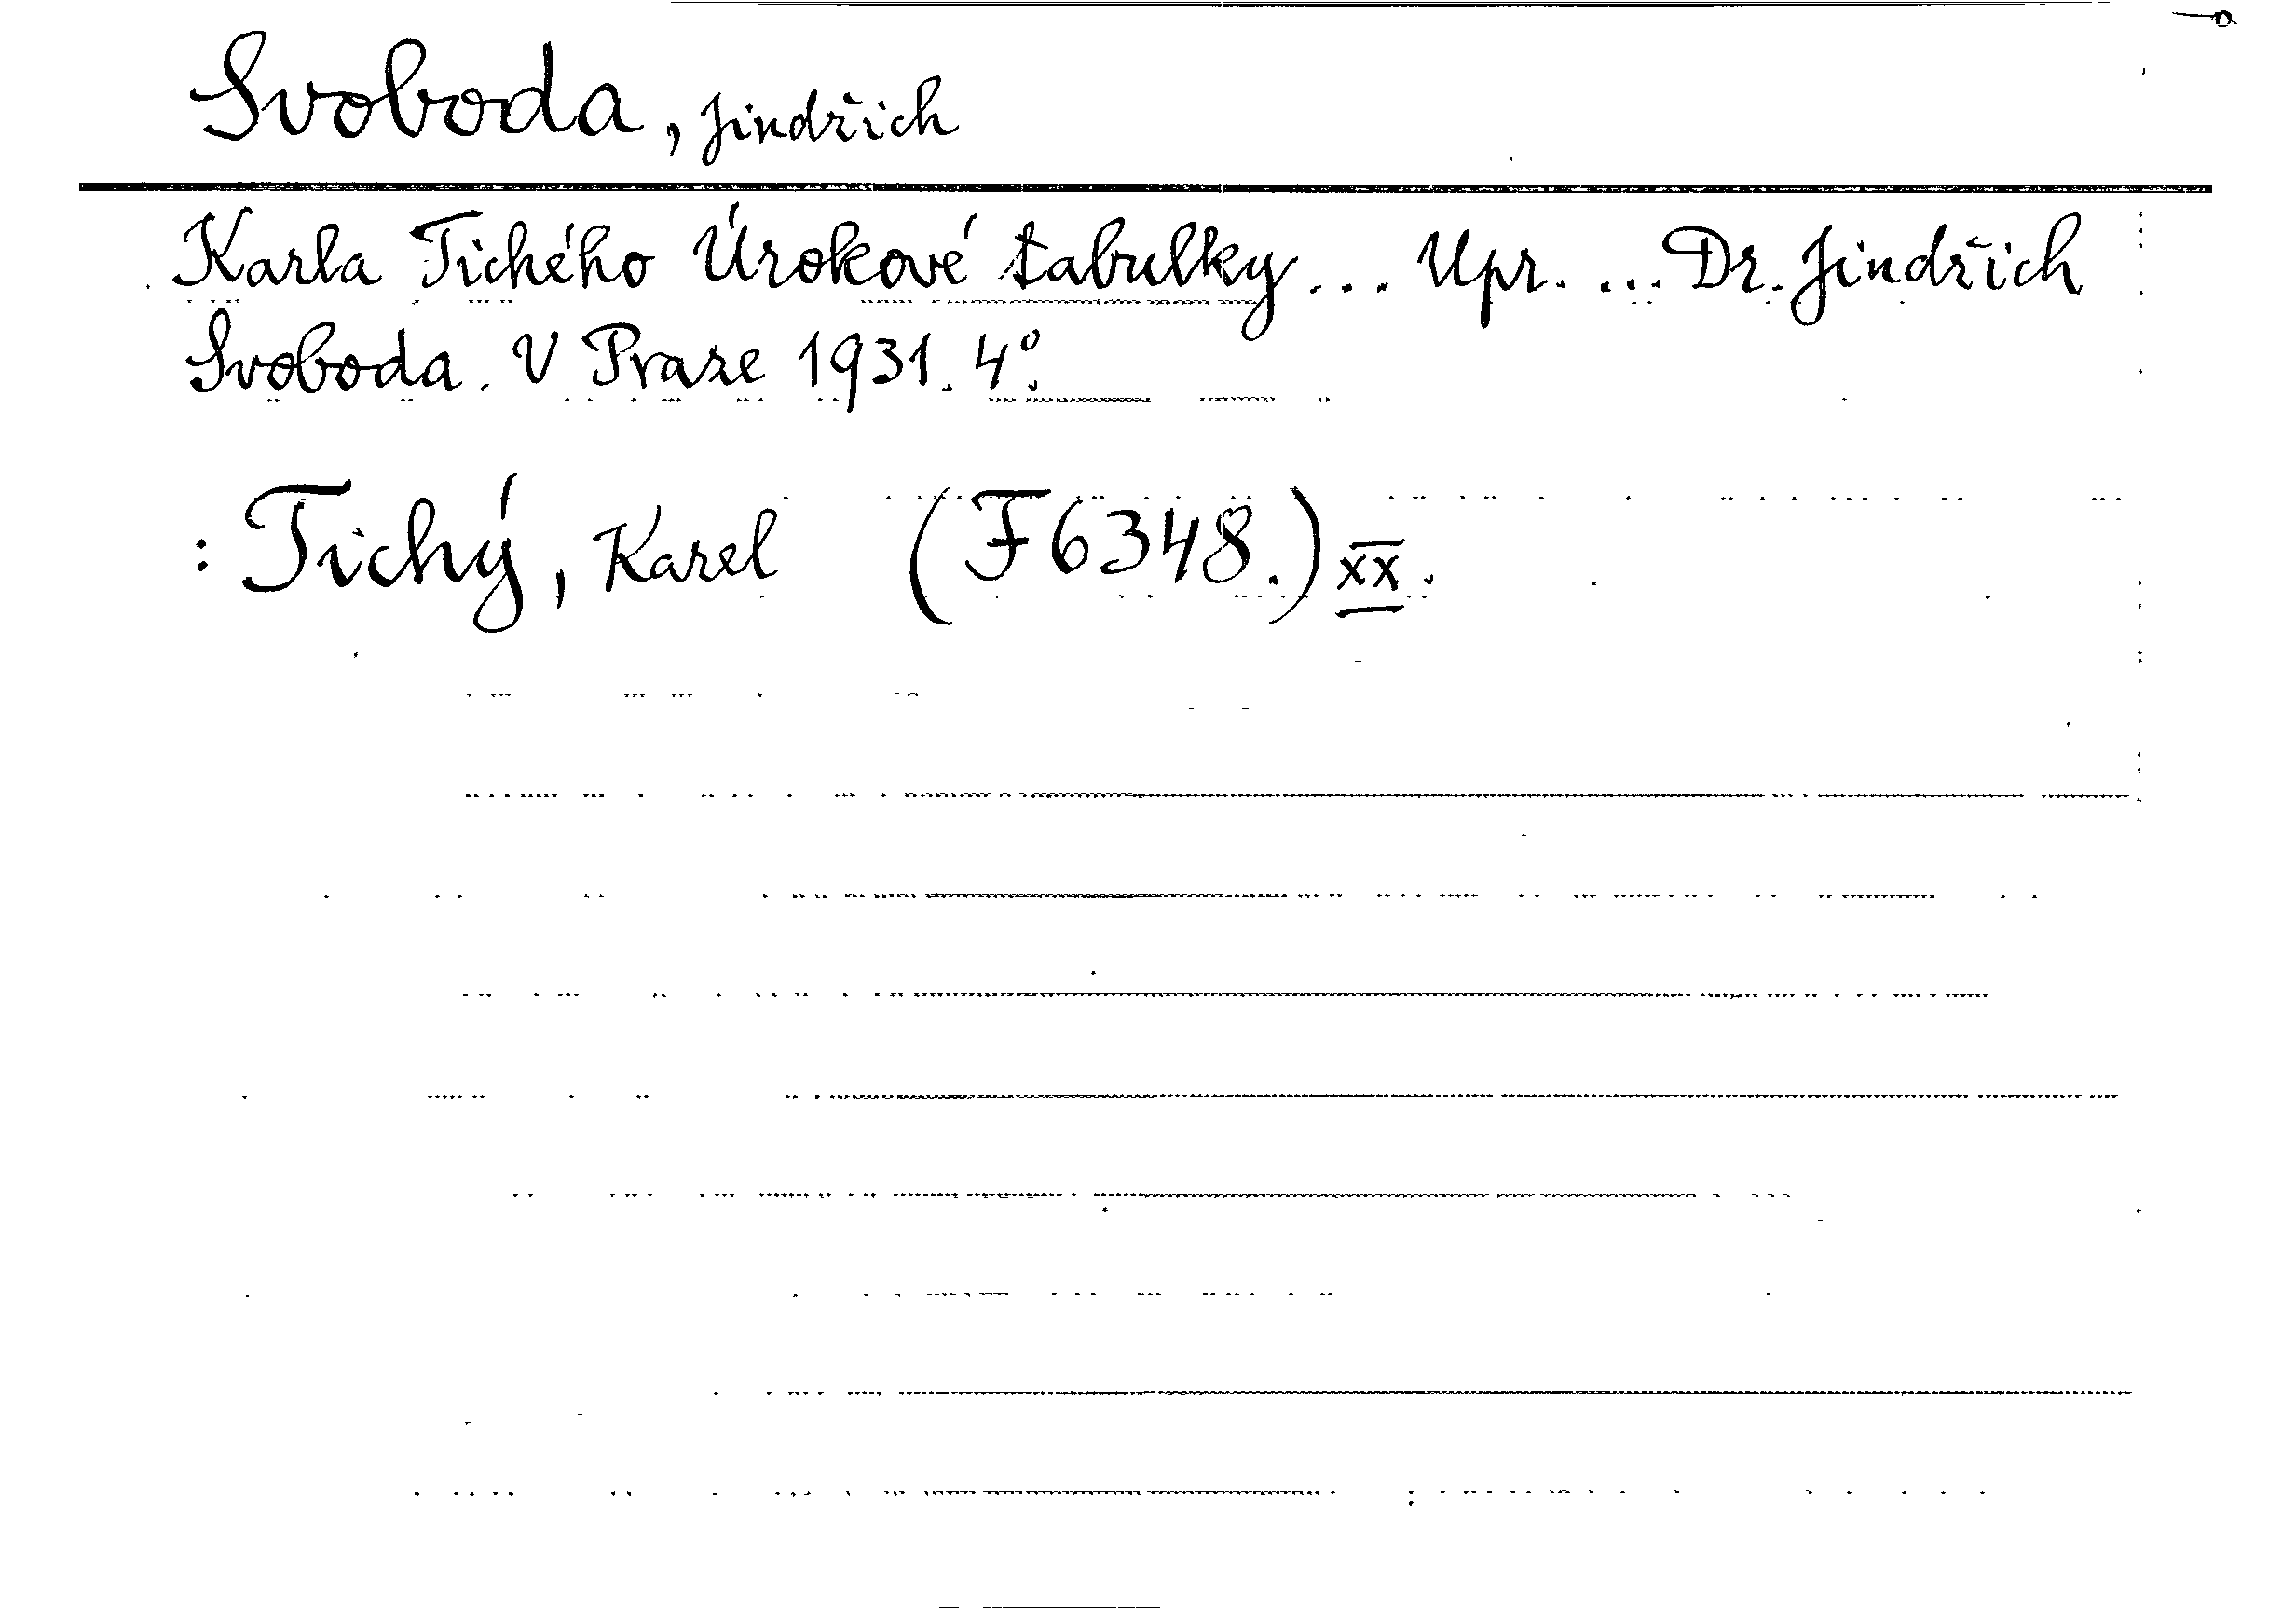 Svoboda, Jindřich
Karla Tichého Úrokové tabulky... Upr. ... Dr. Jindřich
Svoboda. V Praze 1931. 4°.
: Tichý, Karel (F 6348.) XX.